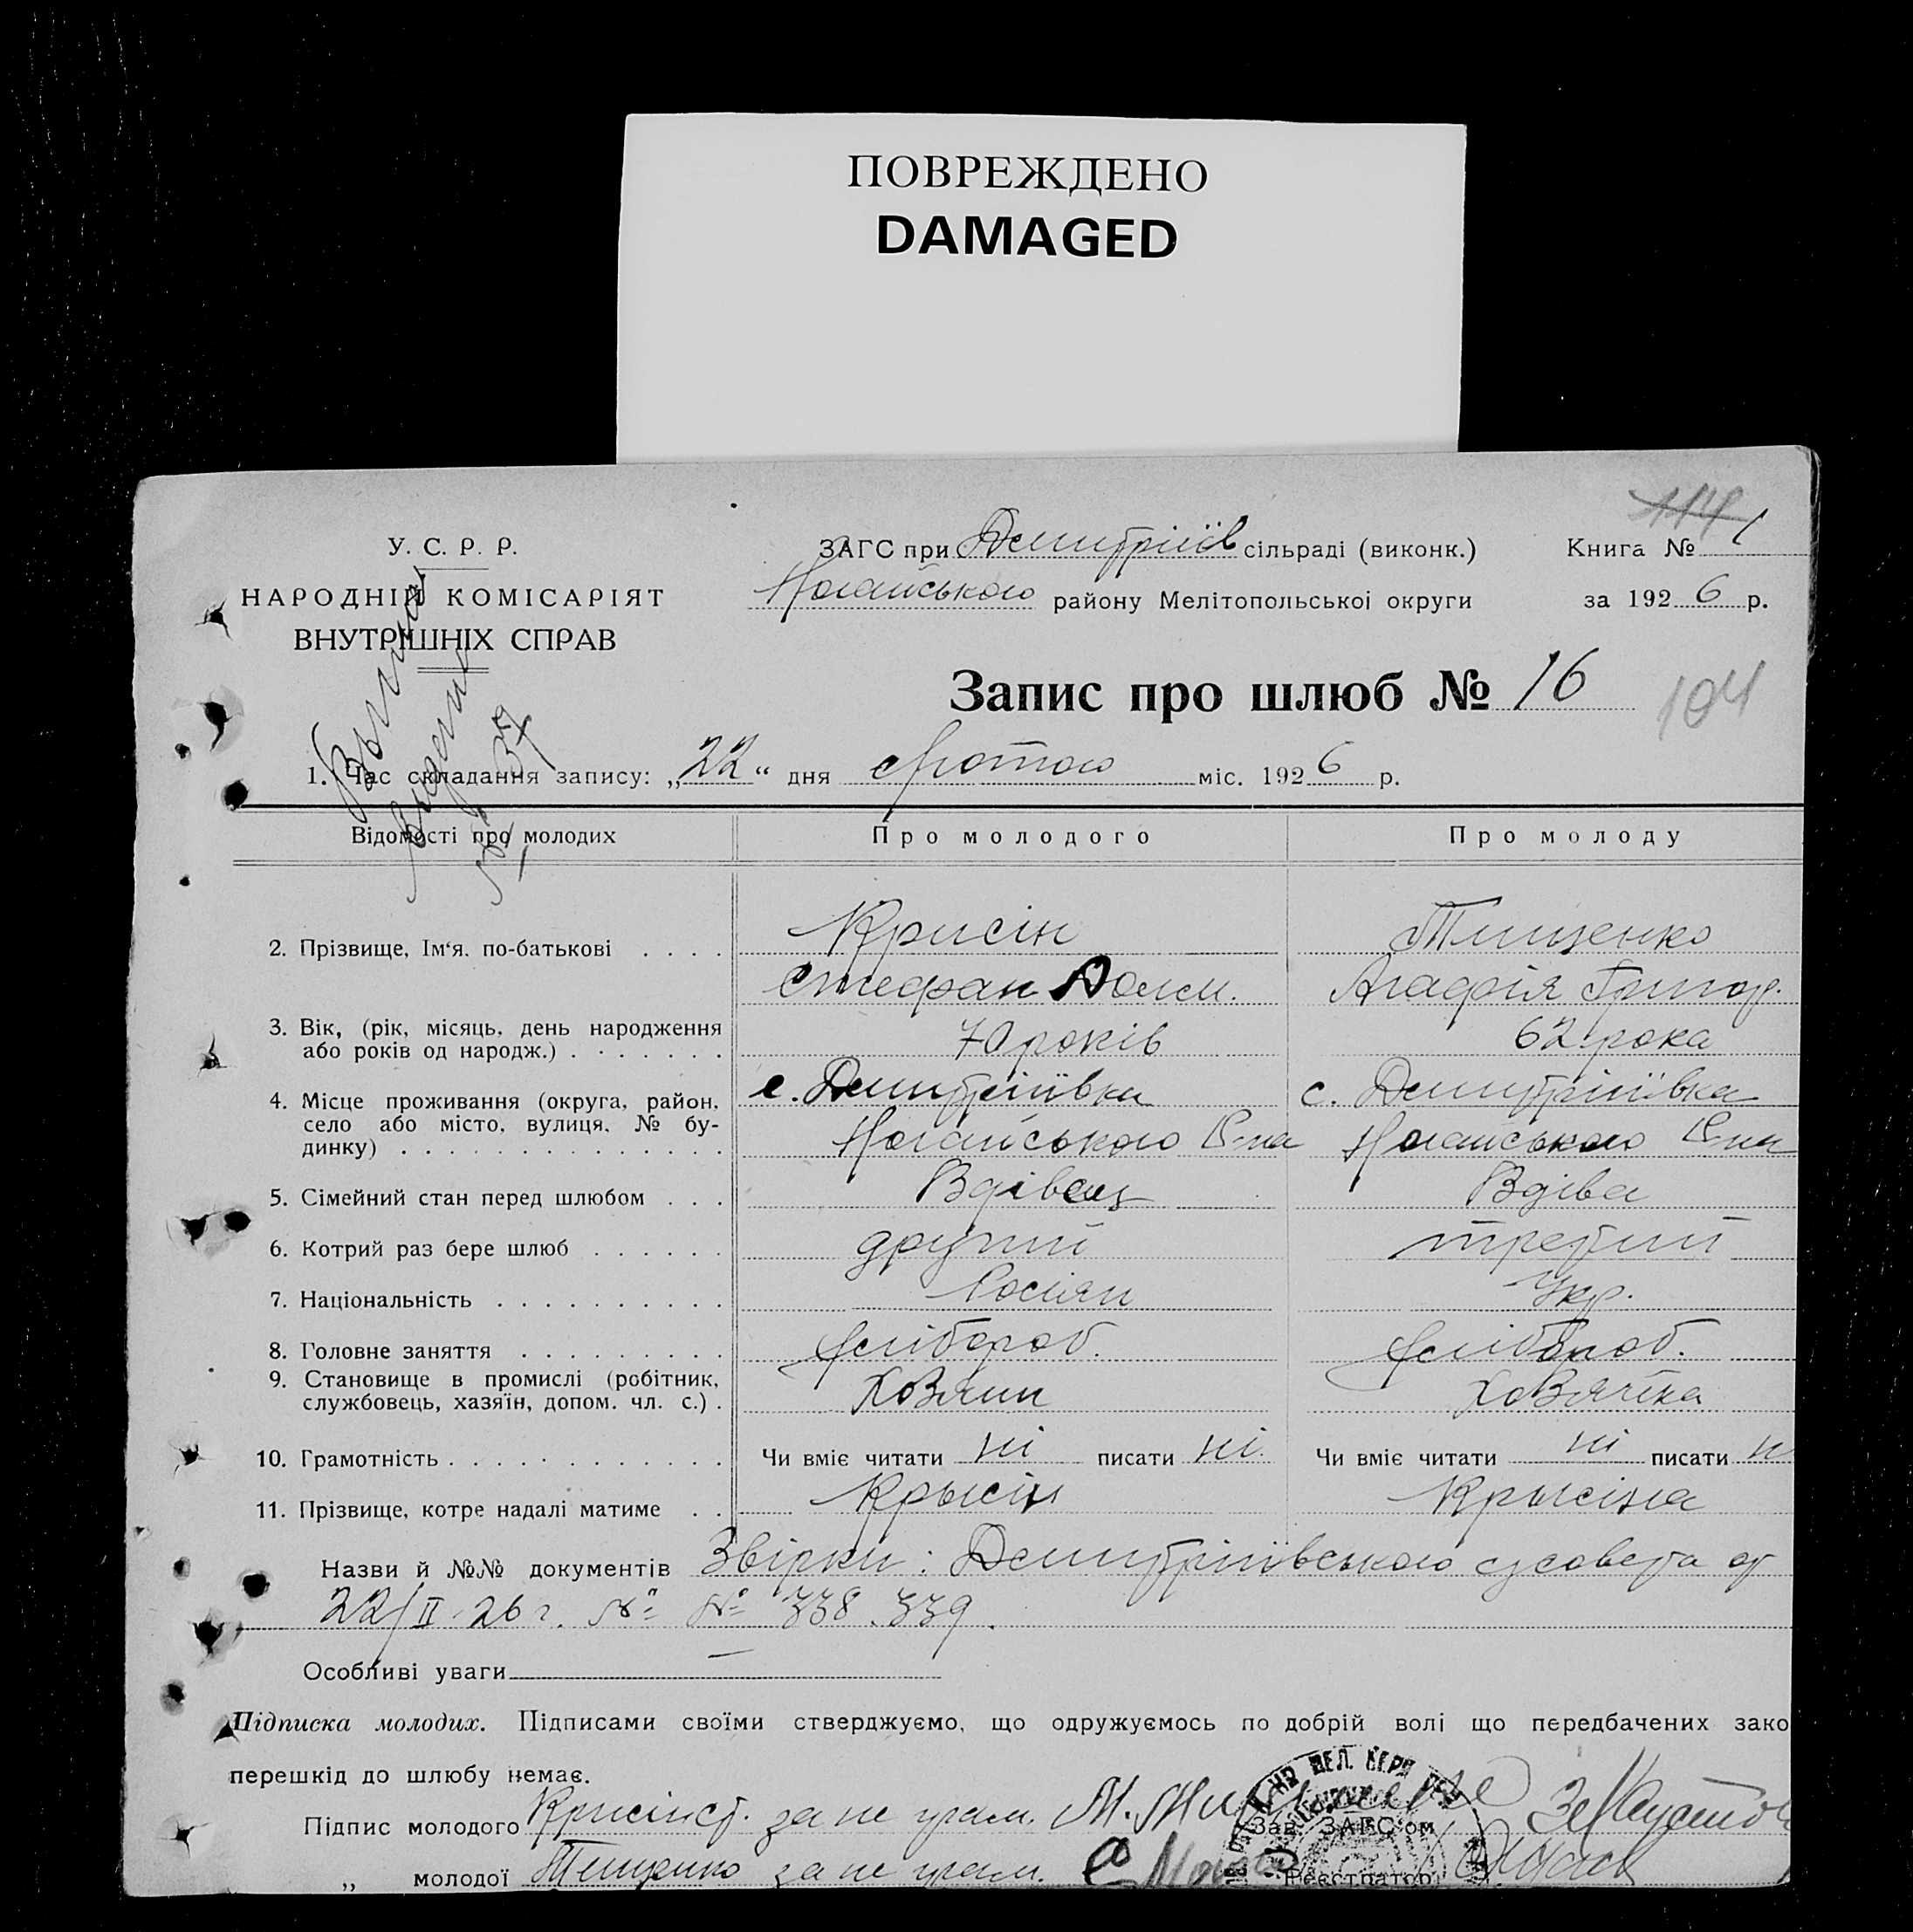 ПОВРЕЖДЕНО
DAMAGED
114
У. С. Р. Р.
НАРОДНІЙ КОМІСАРІЯТ
ВНУТРІШНІХ СПРАВ
ЗАГС при Дмитріїв сільраді (виконк.) Книга № 1
Ногайського району Мелітопольської округи за 1926 р.
Запис про шлюб № 16
104
1. Час складання запису: „22“ дня Лютого міс. 1926 р.
Відомості про молодих Про молодого Про молоду
2. Прізвище, Ім‘я. по-батькові . . . . Крисін Тищенко
Стефан Агафія Григор.
3. Вік, (рік, місяць, день народження
або років од народж.) . . . . . . . 70 років 62 рока
4. Місце проживання (округа, район, с. Дмитріївка с. Дмитріївка
село або місто, вулиця, № бу-
динку) . . . . . . . . . . . . . . Ногайського Р-на Ногайського Р-на
5. Сімейний стан перед шлюбом . . . Вдівец Вдіва
6. Котрий раз бере шлюб . . . . . . другий третий
7. Національність . . . . . . . . . . Росіян Укр.
8. Головне заняття . . . . . . . . . Хлібороб. Хлібороб.
9. Становище в промислі (робітник,
службовець, хазяїн, допом. чл. с.) . Хозяин Хозяйка
10. Грамотність . . . . . . . . . . . . Чи вміє читати ні писати ні. Чи вміє читати ні писати н
11. Прізвище, котре надалі матиме . . Крысін Крысіна
Назви й №№ документів Звірки: Дмитріївського с/совета от
22/II-26 г. № № 338. 339.
Особливі уваги —
Підписка молодих. Підписами своїми стверджуємо, що одружуємось по добрій волі що передбачених зако
перешкід до шлюбу немає.
Підпис молодого Крисін за не грам. М. Зав. ЗАГС'ом
„ молодої Тищенко за не грам. Реєстратор